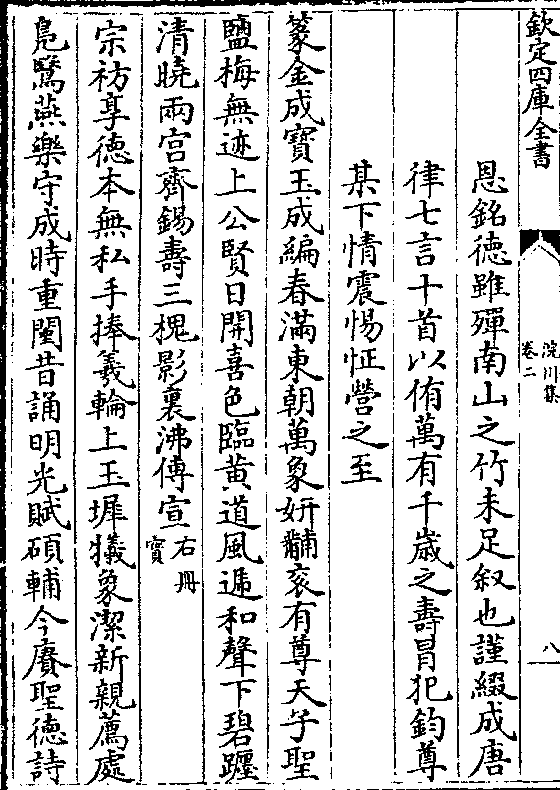 欽定四庫全書
浣川集
卷二
八
恩銘德雖殫南山之竹未足叙也謹綴成唐
律七言十首以侑萬有千歲之壽冒犯鈞尊
某下情震惕怔營之至
篆金成寳玉成編春滿東朝萬象妍黼衮有尊天子聖
鹽梅無迹上公賢日開喜色臨黄道風遞和聲下碧躔
清曉兩宫齊錫壽三槐影裏沸傳宣右冊寳
宗祊享徳本無私手捧羲輪上玉墀犠象潔新親薦處
鳬鷖燕樂守成時重闉昔誦明光賦碩輔今賡聖徳詩